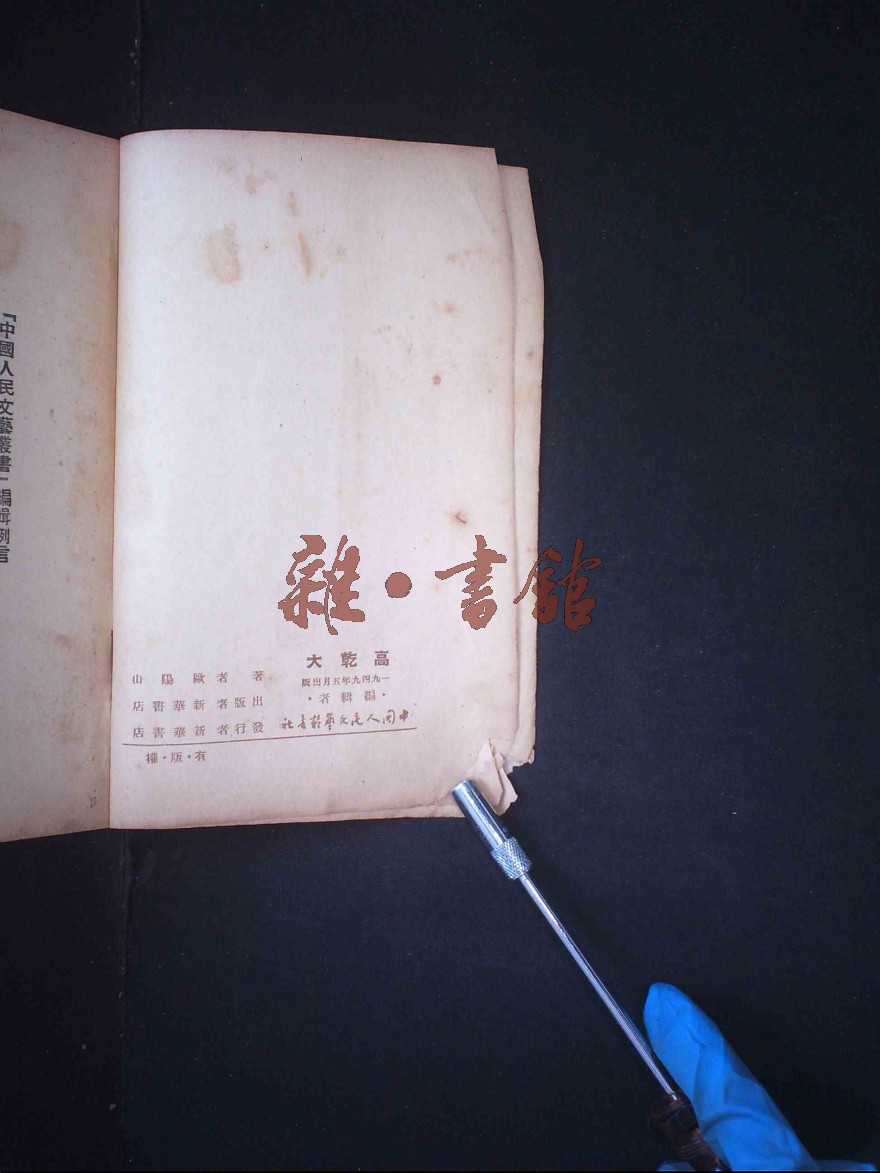 「中國人民文藝叢書」編輯例言
雜·書館
高乾大
一九四九年五月出版
·編輯者·
中国人民文藝叢書社
著者歐陽山
出版者新華書店
發行者新華書店
有·版·權